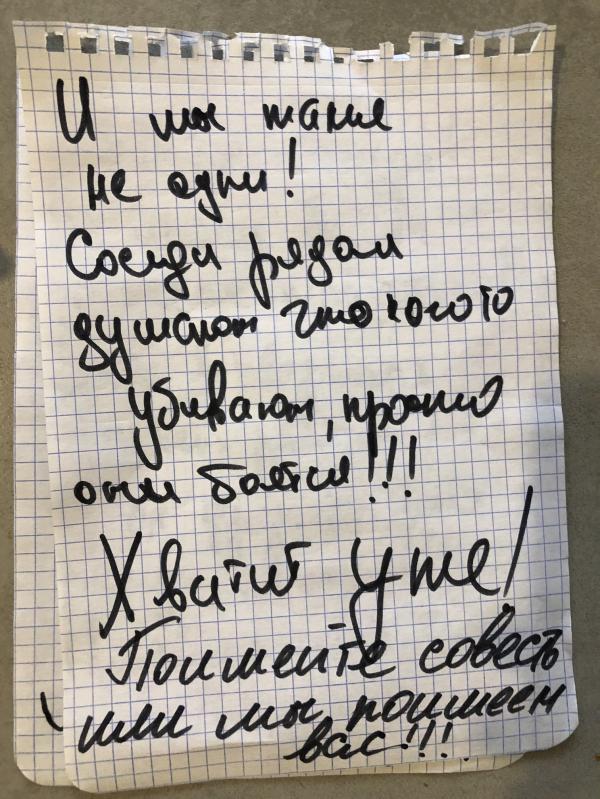 И мы такие
не одни!
Соседи рядом
думают что кого то
убивают, просто
они боятся!!!
Хватит уже!
Поимейте совесть
или мы поимеем
вас!!!